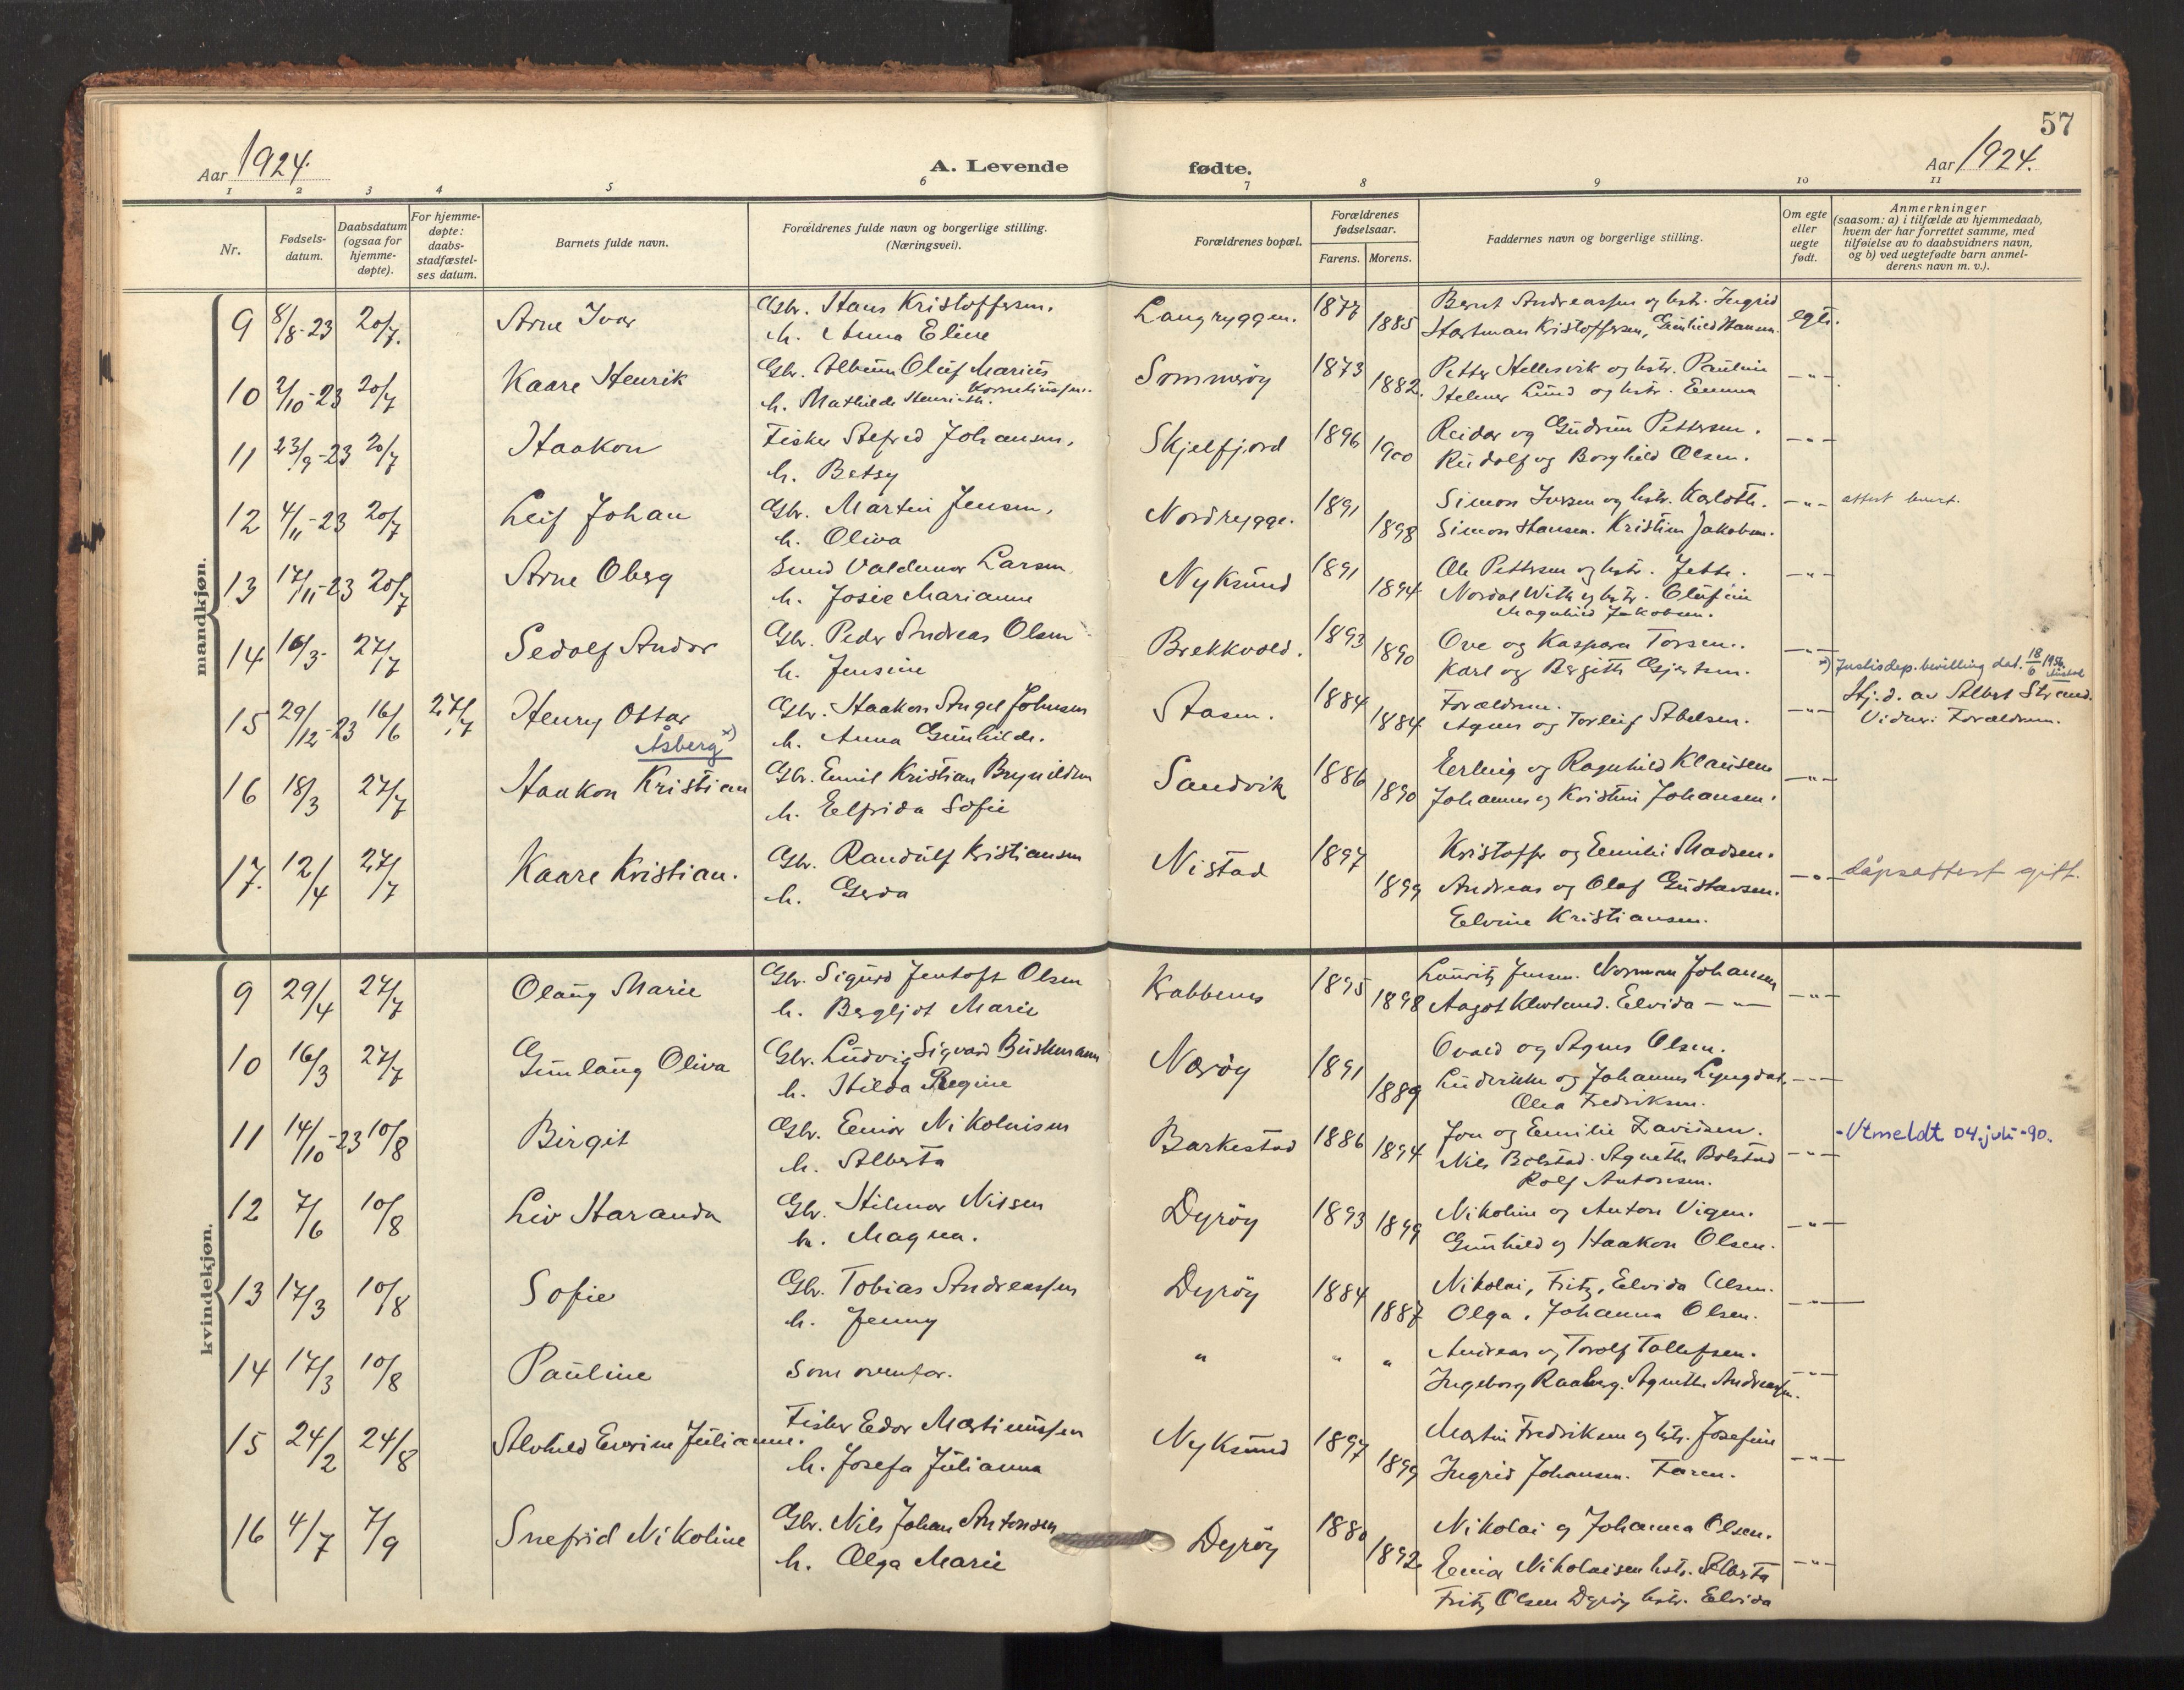 57
Aar 1924.
A. Levende fødte.
Aar 1924.
1 2 3 4 5 6 7 8 9 10 11
Nr.
Fødsels-
datum.
Daabsdatum
(ogsaa for
hjemme-
døpte).
For hjemme-
døpte:
daabs-
stadfæstel-
ses datum.
Barnets fulde navn.
Forældrenes fulde navn og borgerlige stilling.
(Næringsvei).
Forældrenes bopæl.
Forældrenes
fødselsaar.
Farens. Morens.
Faddernes navn og borgerlige stilling.
Om egte
eller
uegte
født.
Anmerkninger
(saasom: a) i tilfælde av hjemmedaab,
hvem der har forrettet samme, med
tilføielse av to daabsvidners navn,
og b) ved uegtefødte barn anmel-
derens navn m. v.).
mandkjøn.
9 8/8-23 20/7. Arne Ivar Gbr. Hans Kristoffersen. Langryggen. 1877 Bernt Andreassen og hstr. Ingrid egte.
h. Anna Eline 1885 Hartman Kristoffersen, Gunhild Hansen.
10 2/10-23 20/7 Kaare Henrik Gbr. Albein Oluf Marius Sommerøy 1873 Petter Hellesvik og hstr. Pauline -"-
Korneliussen.
h. Mathilde Henriette. 1882. Helmer Lund og hstr. Emma
11 23/9-23 20/7 Haakon Fisker Alfred Johansen, Skjelfjord 1896 Reidar og Gudrun Pettersen. -"-
h. Betsy 1900 Rudolf og Borghild Olsen.
12 4/11-23 20/7 Leif Johan Gbr. Martin Jensen, Nordrygge. 1891 Simon Iversen og hstr. -"- attest
h. Oliva 1898 Simon Hansen. Kristine Jakobsen.
13 17/11-23 20/7 Arne Oberg Smed Valdemar Larsen Nyksund 1891 Ole Pettersen og hstr. Jette. -"-
h. Josie Marianne 1894 Nordal With og hstr. Olufine
Magnhild Jakobsen.
14 16/3- 27/7 Sedolf Andor Gbr. Peder Andreas Olsen Brekkvold. 1893 Ove og Kaspara Torsen. -"-
h. Jensine 1890 Karl og Bergitte Gjertsen.
x) Justisdep. bevilling dat. 18/6 1956.
15 29/12-23 16/6 27/7 Henry Ottar Gbr. Haakon Angel Johnsen Stasen. 1884 Forældrene. -"- Hj.d. av Albert Strand.
Åsberg x) h. Anna Gunhilde. 1884 Agnes og Torleif Abelsen. Vidner: Forældrene.
16 18/3 27/7 Haakon Kristian Gbr. Emil Kristian Brynildsen Sandvik 1886 Erling og Ragnhild Klausen -"-
h. Elfrida Sofie 1890 Johannes og Kristine Johansen.
17. 12/4 27/7 Kaare Kristian. Gbr. Randulf Kristiansen Nistad 1897 Kristoffer og Emilie Madsen. -"- dåpsattest gitt.
h. Gerda 1899 Andreas og Olaf Gustavsen.
Elvine Kristiansen.
kvindekjøn.
9 29/4 27/7 Olaug Marie Gbr. Sigurd Jentoft Olsen Krabbenes 1895 Lauritz Jensen. Norman Johansen -"-
h. Bergljot Marie 1898 Aagot Klevland. Elvida -"-
10 16/3 27/7 Gunlaug Oliva Gbr. Ludvig Sigvard Buschmann Nærøy 1891 Ovald og Agnes Olsen.
h. Hilda Regine 1889 Ludvikke og Johannes Lyngdal. -"-
Olea Fredriksen.
11 14/10-23 10/8 Birgit Gbr. Einar Nikolaisen Barkestad 1886 Jon og Emilie Zavidsen. -Utmeldt 04.juli-90.
h. Alberta 1894 Nils Bolstad. Agnethe Bolstad -"-
Rolf Antonsen.
12 7/6 10/8 Liv Haranda Gbr. Hilmar Nissen Dyrøy 1893 Nikoline og Anton Vigen. -"-
h. Magna. 1899 Gunhild og Haakon Olsen.
13 17/3 10/8 Sofie Gbr. Tobias Andreassen Dyrøy 1884 Nikolai, Fritz, Elvida Olsen.
h. Jenny 1887 Olga, Johanna Olsen. -"-
14 17/3 10/8 Pauline som ovenfor. " " " Andreas og Torolf Tollefsen.
Ingeborg Raaberg. Agnethe Andreassen. -"-
15 24/2 24/8 Alvhild Everine Julianne. Fisker Edor Martinussen Nyksund 1897 Martin Fredriksen og hstr. Josefine
h. Josefa Julianna 1899 Ingrid Johansen. Faren. -"-
16 4/7 7/9 Snefrid Nikoline Gbr. Nils Johan Antonsen Dyrøy 1880 Nikolai og Johanna Olsen.
h. Olga Marie 1892. Einar Nikolaisen hstr. Alberta -"-
Fritz Olsen Dyrøy hstr. Elvida